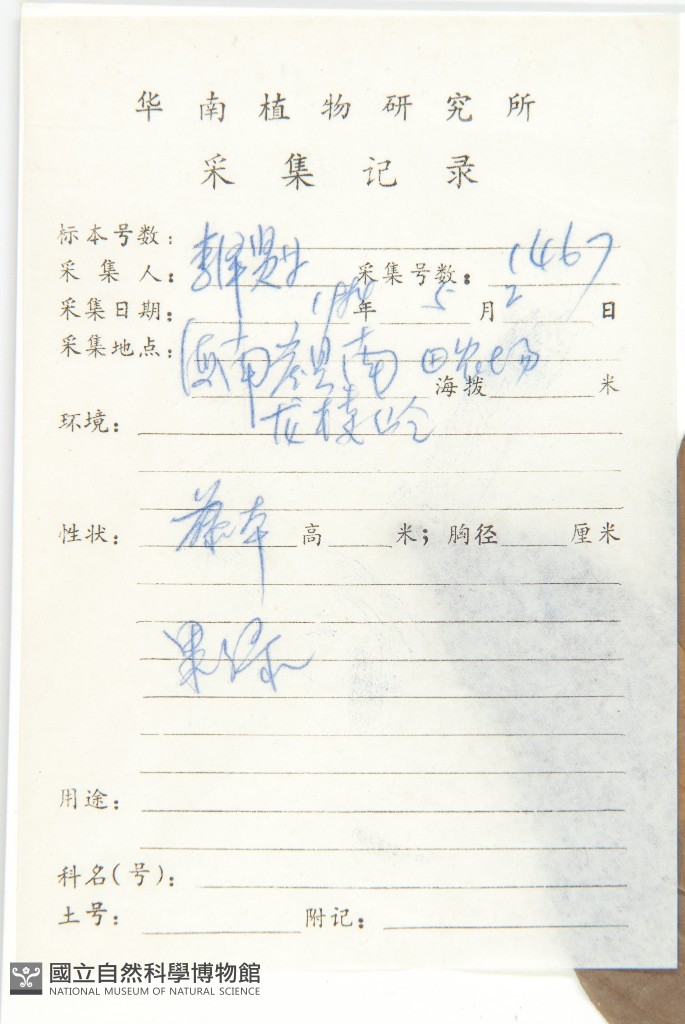 华南植物研究所
采集记录
标本号数：
采集人：李泽贤 采集号数：1467
采集日期：1984年5月2日
采集地点：海南崖县南田农场
海拨 米
环境：龙楼岭
性状：藤本 高 米；胸径 厘米
果绿
用途：
科名(号)：
土号： 附记：
國立自然科學博物館
NATIONAL MUSEUM OF NATURAL SCIENCE